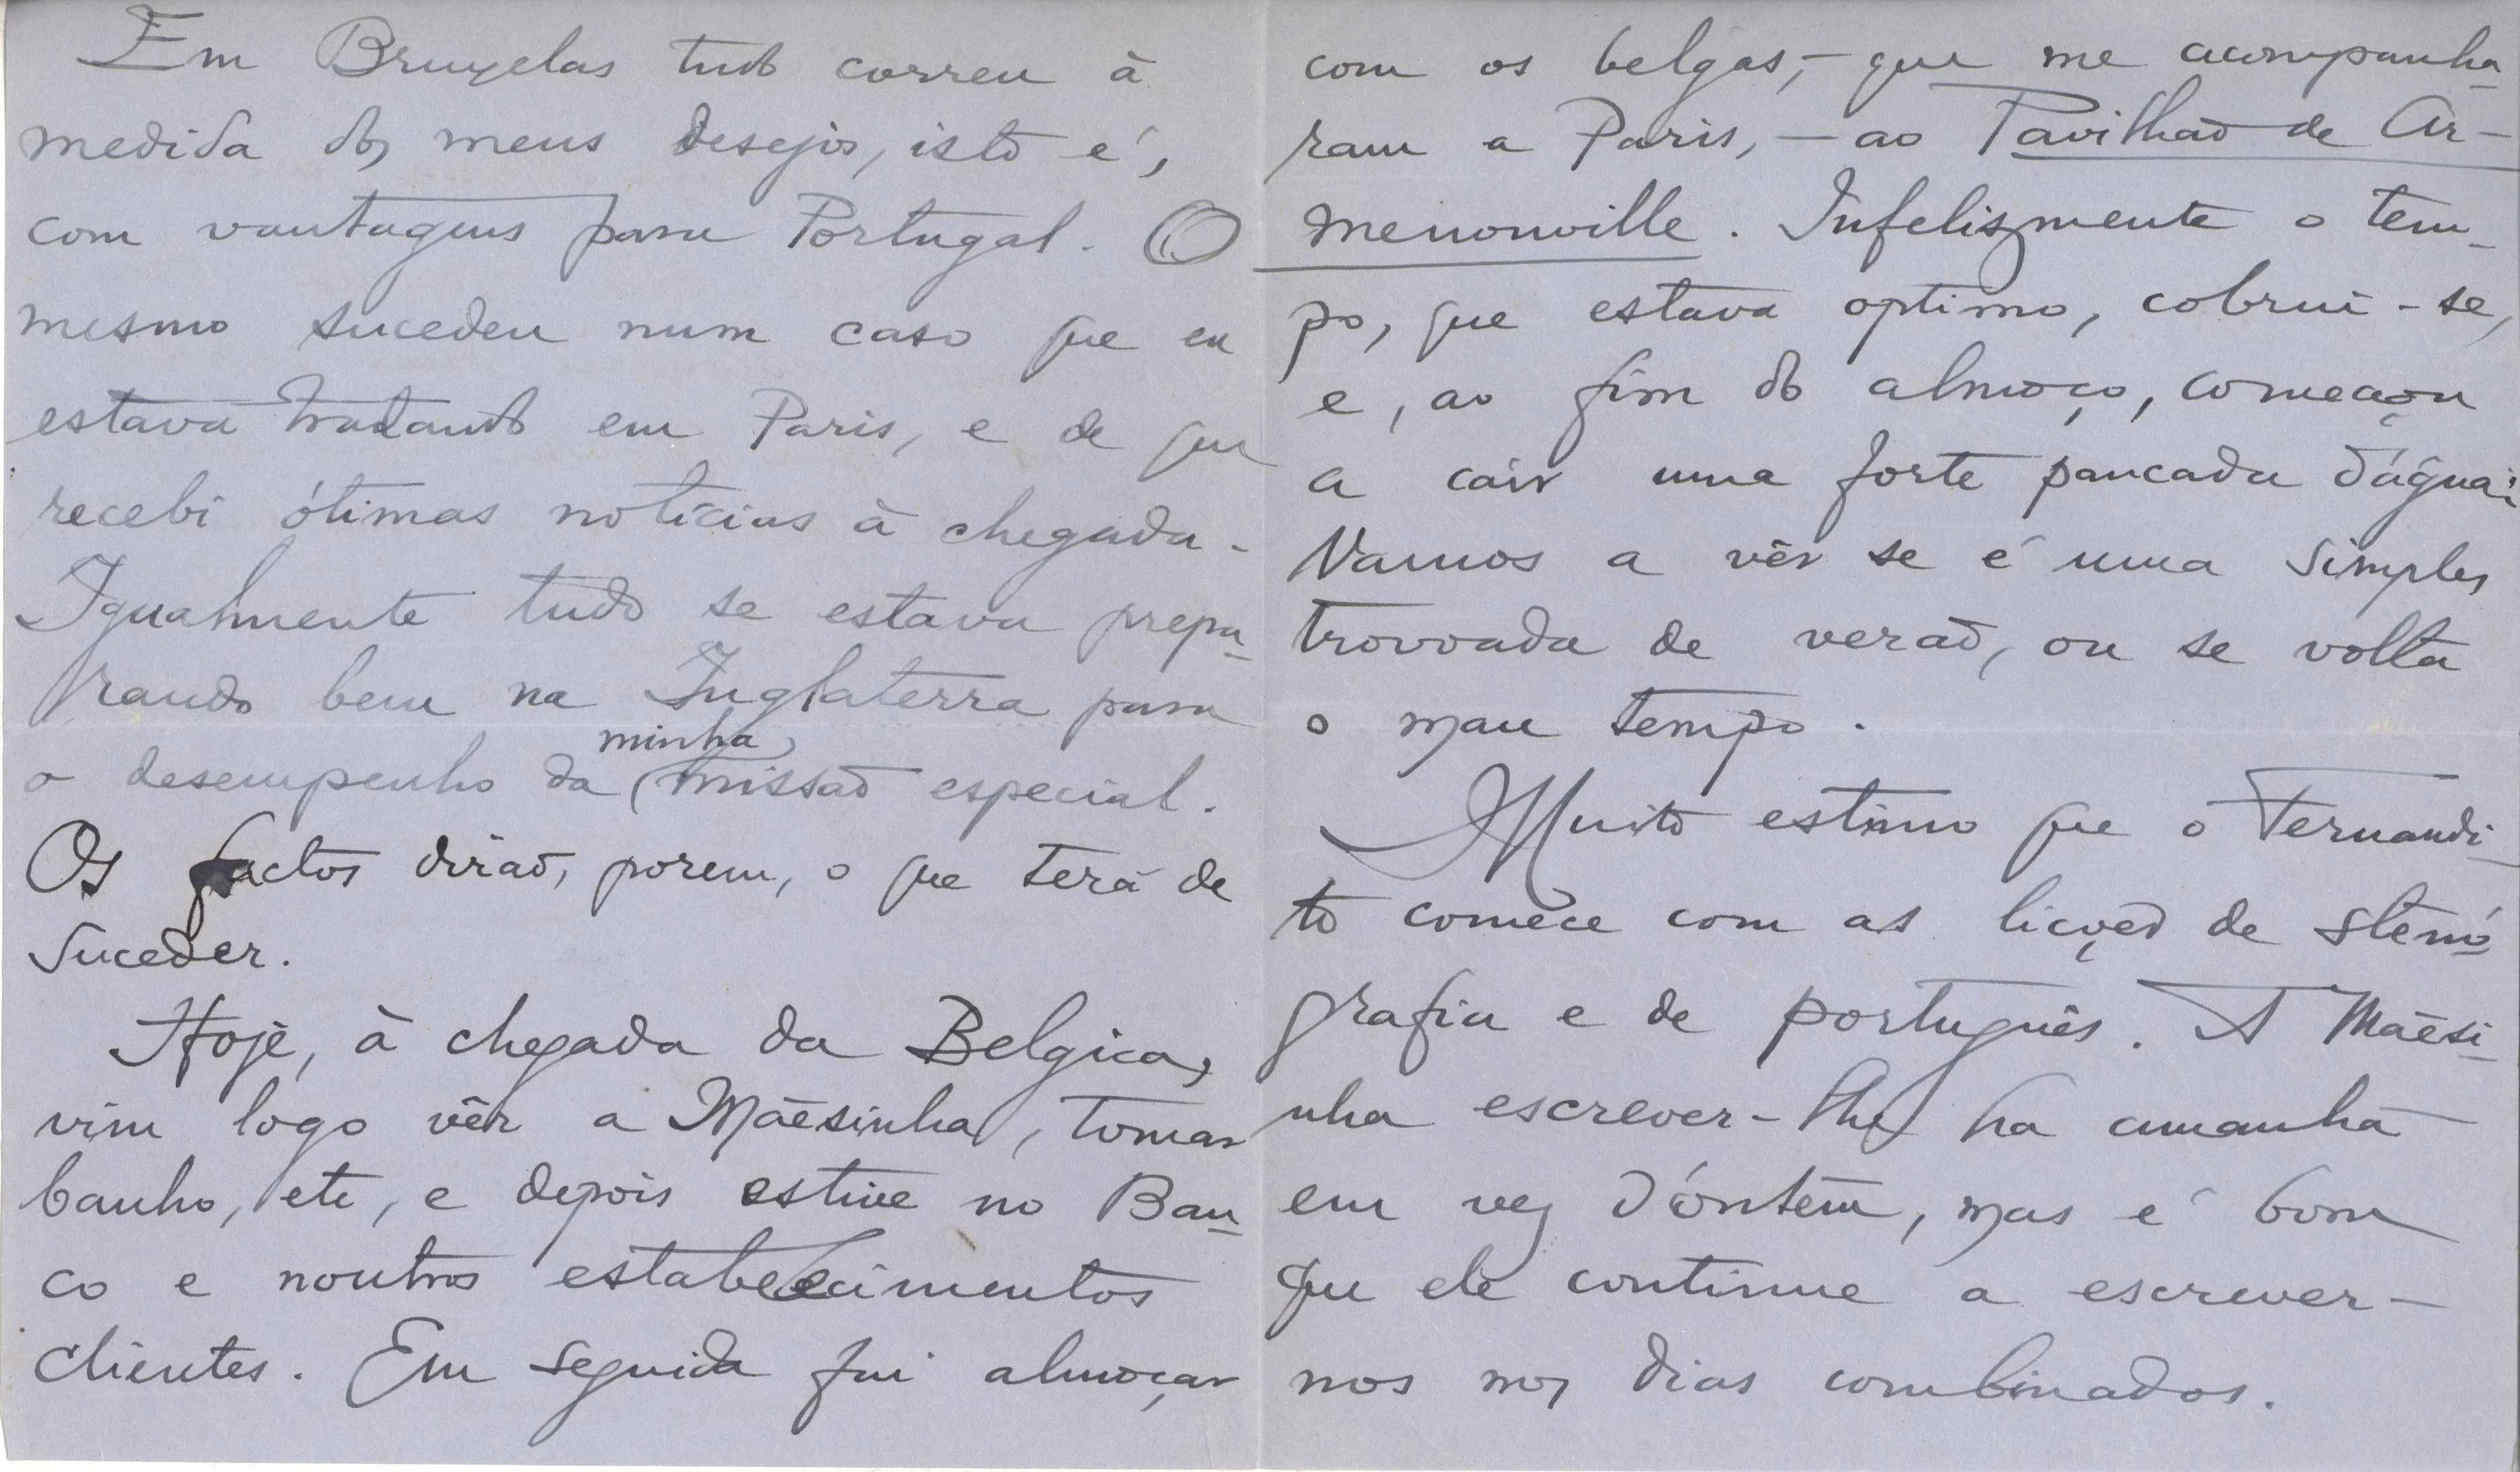 Em Bruxelas tudo correu à
medida dos meus desejos, isto é,
com vantagens para Portugal. O
mesmo sucedeu num caso que eu
estava tratando em Paris, e de que
recebi ótimas notícias à chegada.
Igualmente tudo se estava prepa-
rando bem na Inglaterra para
minha
o desempenho da missão especial.
Os factos dirão, porem, o que terá de
suceder.
Hoje, à chegada da Belgica,
vim logo vêr a Mãesinha, tomar
banho, etc, e depois estive no Ban-
co e noutros estabelecimentos
clientes. Em seguida fui almoçar
com os belgas, - que me acompanha-
ram a Paris, - ao Pavilhão de Ar-
menonville. Infelizmente o tem-
po, que estava optimo, cobriu-se,
e, ao fim do almoço, começou
a caír uma forte pancada d'água.
Vamos a vêr se é uma simples
trovoada de verão, ou se volta
o mau tempo.
Muito estimo que o Fernandi-
to comece com as lições de stenó-
grafia e de português. A Mãesi-
nha escrever-lhe ha amanhã
em vez d'óntem, mas é bom
que ele continue a escrever-
nos nos dias combinados.